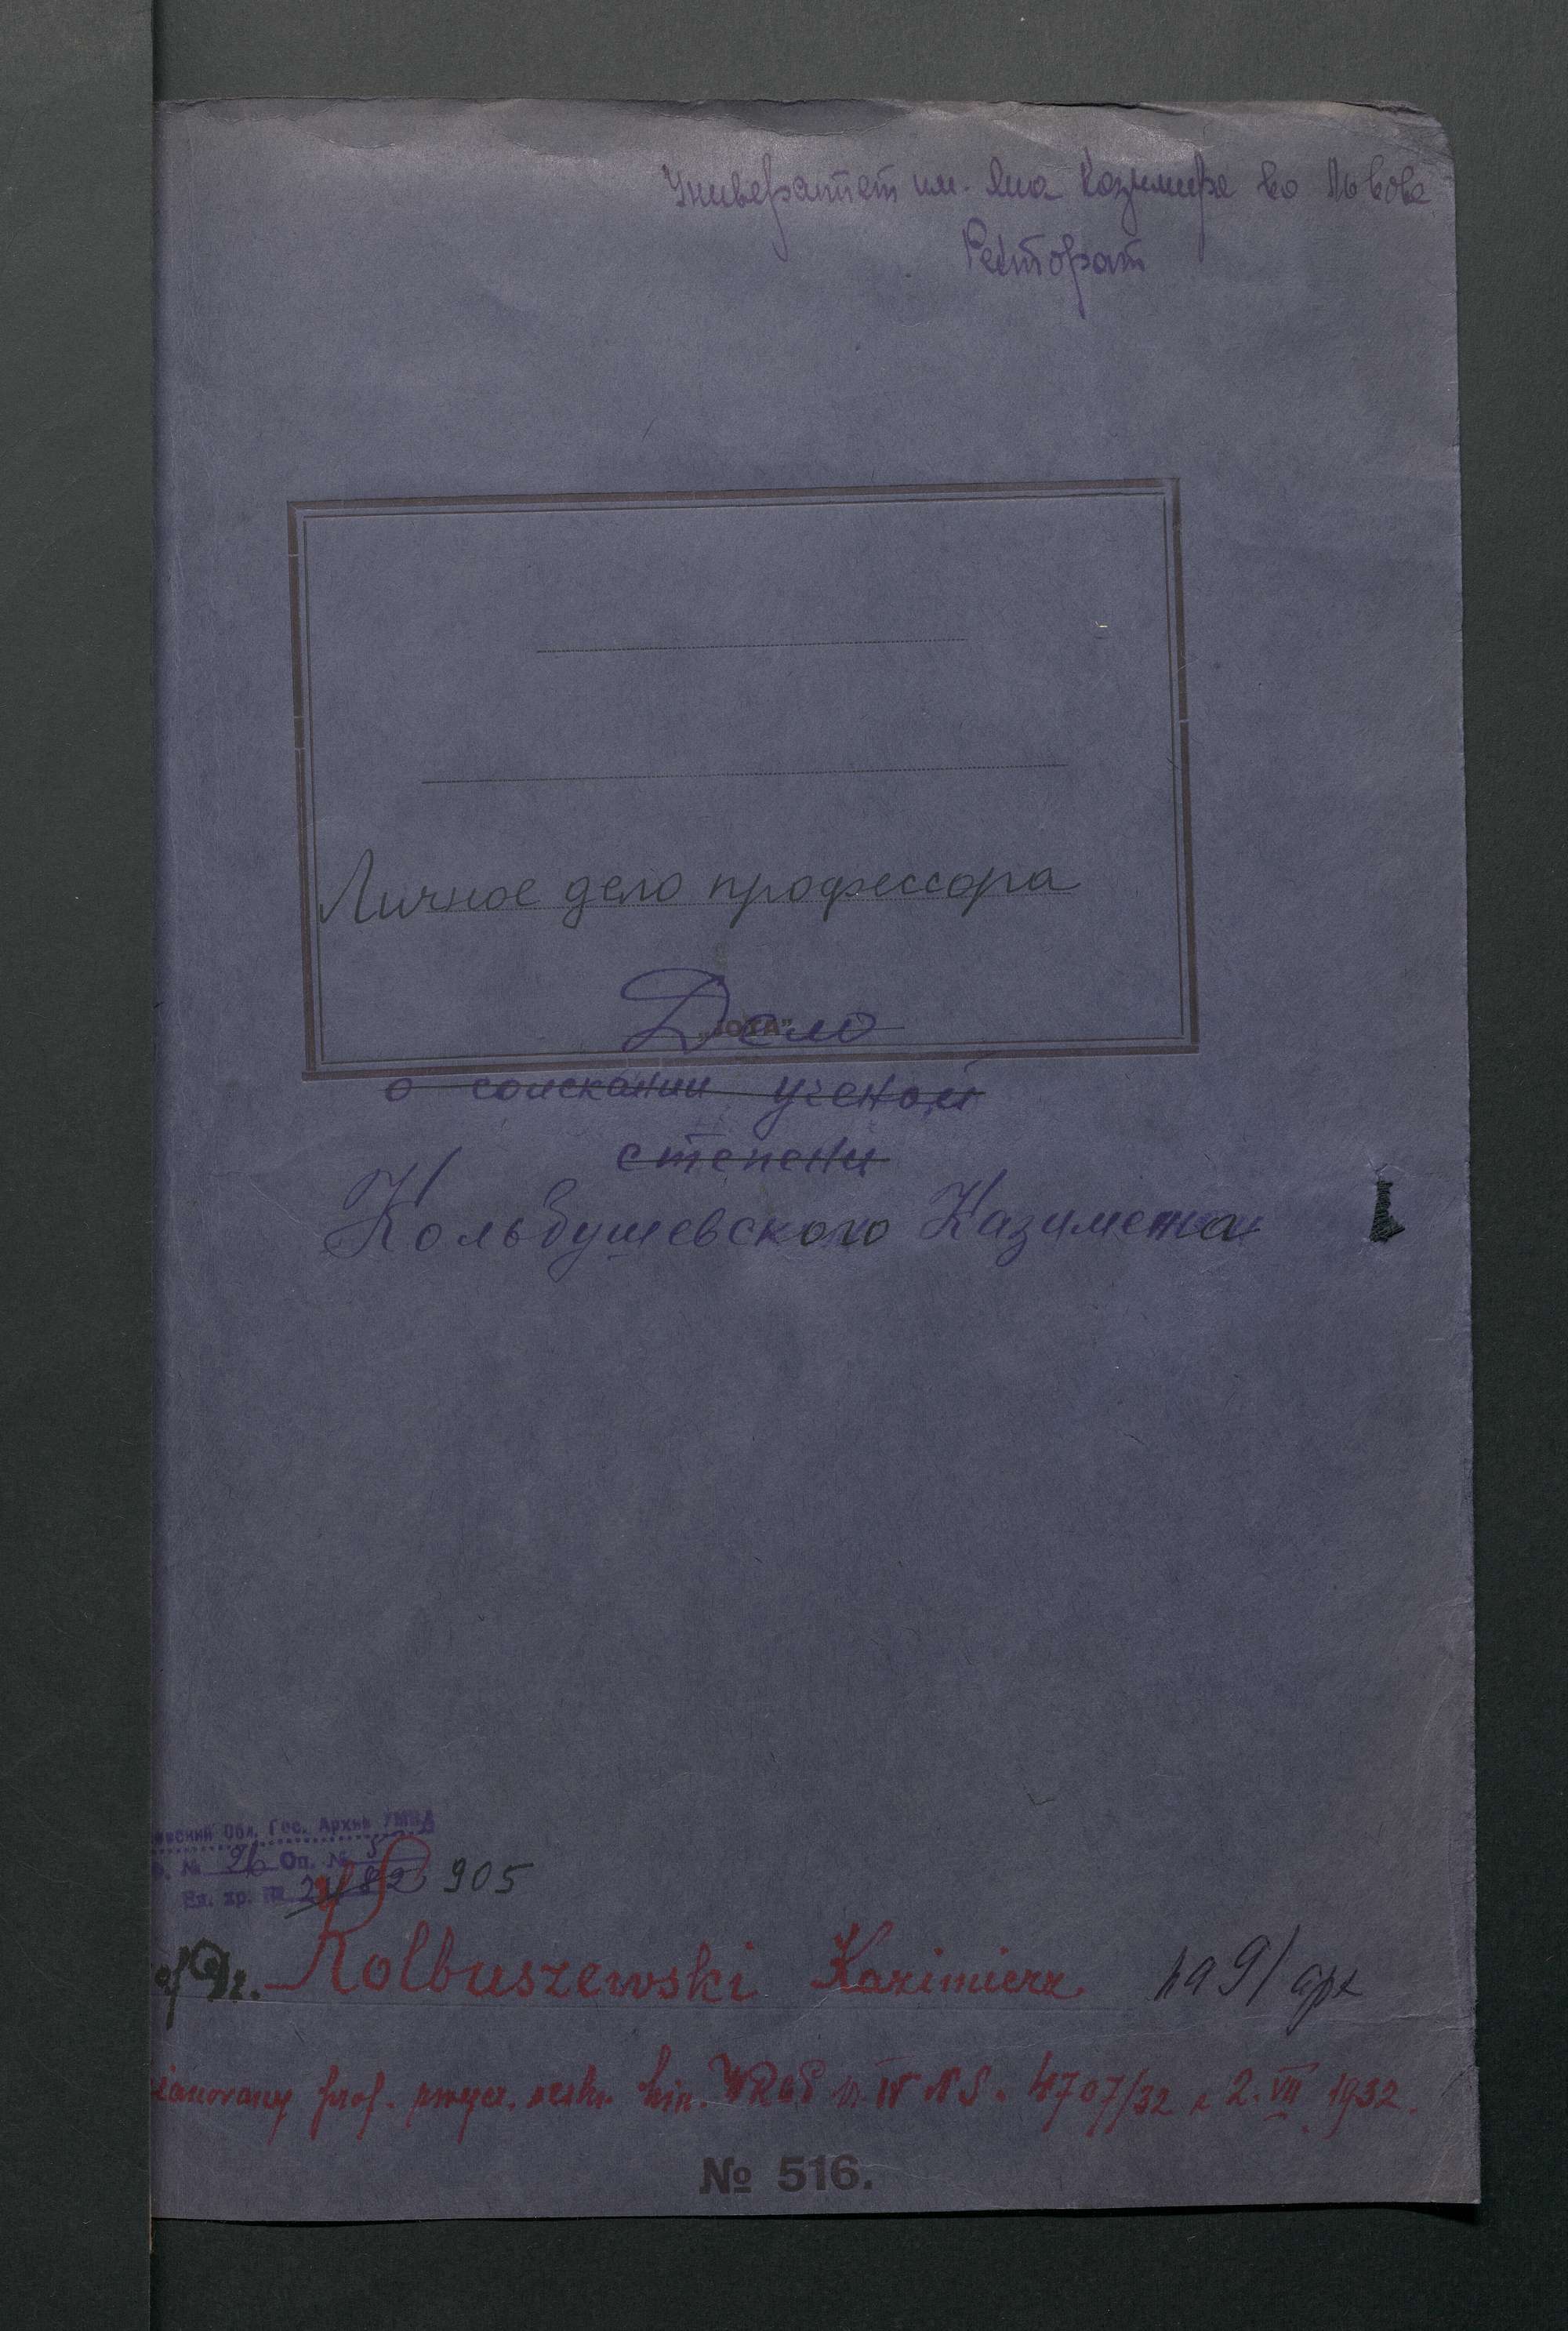 Университет им. Яна Казимира во Львове
Ректорат
Личное дело профессора
Дело
о соискании ученой
степени
Кольбушевского Казимежа
вский Обл. Гос. Архив УМВД
. № 26 Оп. № 5
Ед. хр. № 2482 905
of Dr. Kolbuszewski Kazimierz
ianowany prof. zwycz. reskr. Min. WRiOP n. IV NS. 4707/32 z 2. VII 1932.
№ 516.